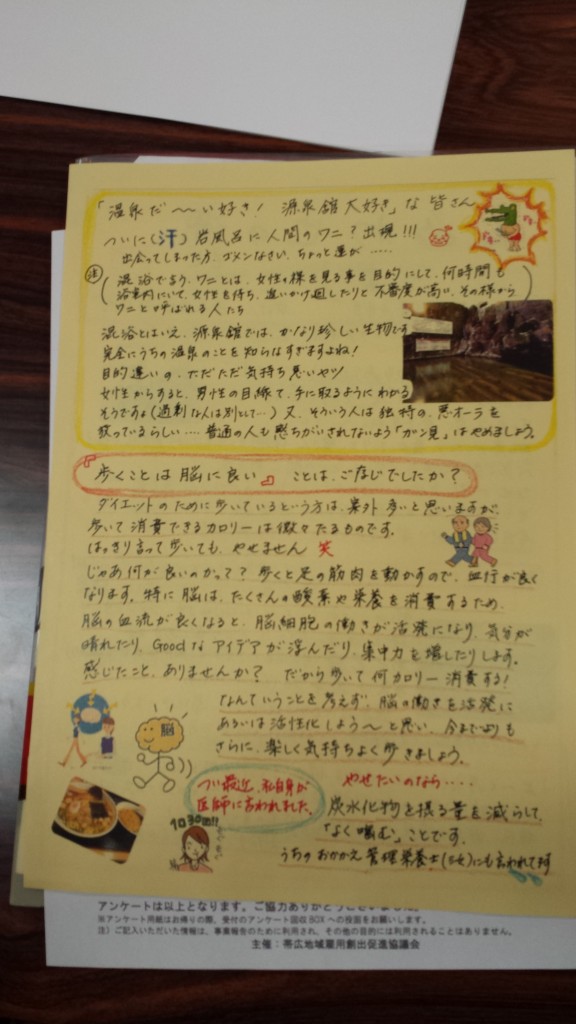 「温泉だ〜〜い好き! 源泉館大好き」な 皆さん
ついに(汗) 岩風呂に 人間のワニ? 出現!!!
出会ってしまった方、ゴメンなさい、ちょっと運が……
注
混浴でいう、ワニとは、女性の裸を見る事を目的にして、何時間も
浴室内にいて、女性を待ち、追いかけ回したりと 不審度が高い、その様から
ワニと呼ばれる人たち
混浴とはいえ、源泉館では、かなり珍しい生物です
完全にうちの温泉のことを知らなすぎますよね!
目的違いの、ただただ気持ち悪いヤツ!
女性からすると、男性の目線て、手に取るようにわかる
そうですよ(過剰な人は別として…) 又、そういう人は 独特の、悪オーラを
放っているらしい…. 普通の人も 感ちがいされないよう「ガン見」はやめましょう。
『歩くことは脳に良い』 ことは、ご存じでしたか?
ダイエットのために歩いているという方は、案外 多いと思いますが、
歩いて消費できるカロリーは微々たるものです。
はっきり言って歩いても、やせません 笑
じゃあ何が良いのかって? 歩くと足の筋肉を動かすので、血行が良く
なります。特に脳は、たくさんの酸素や栄養を消費するため、
脳の血流が良くなると、脳細胞の働きが活発になり、気分が
晴れたり、Goodな アイデアが浮んだり、集中力を増したりします。
感じたこと、ありませんか? だから歩いて何カロリー消費する!
なんていうことを考えず、脳の働きを活発に
あるいは活性化しよう〜と思い、今までよりも
さらに、楽しく気持ちよく歩きましょう。
脳
つい最近、私自身が
医師に言われました。
やせたいのなら・・・・
炭水化物を摂る量を減らして、
「よく噛む」ことです。
1口30回!!
うちのおかかえ管理栄養士(女)にも言われてます
アンケートは以上となります。ご協力ありがとうございました。
※アンケート用紙はお帰りの際、受付のアンケート回収BOXへの投函をお願いします。
注)ご記入いただいた情報は、事業報告のために利用され、その他の目的には利用されることはありません。
主催:帯広地域雇用創出促進協議会